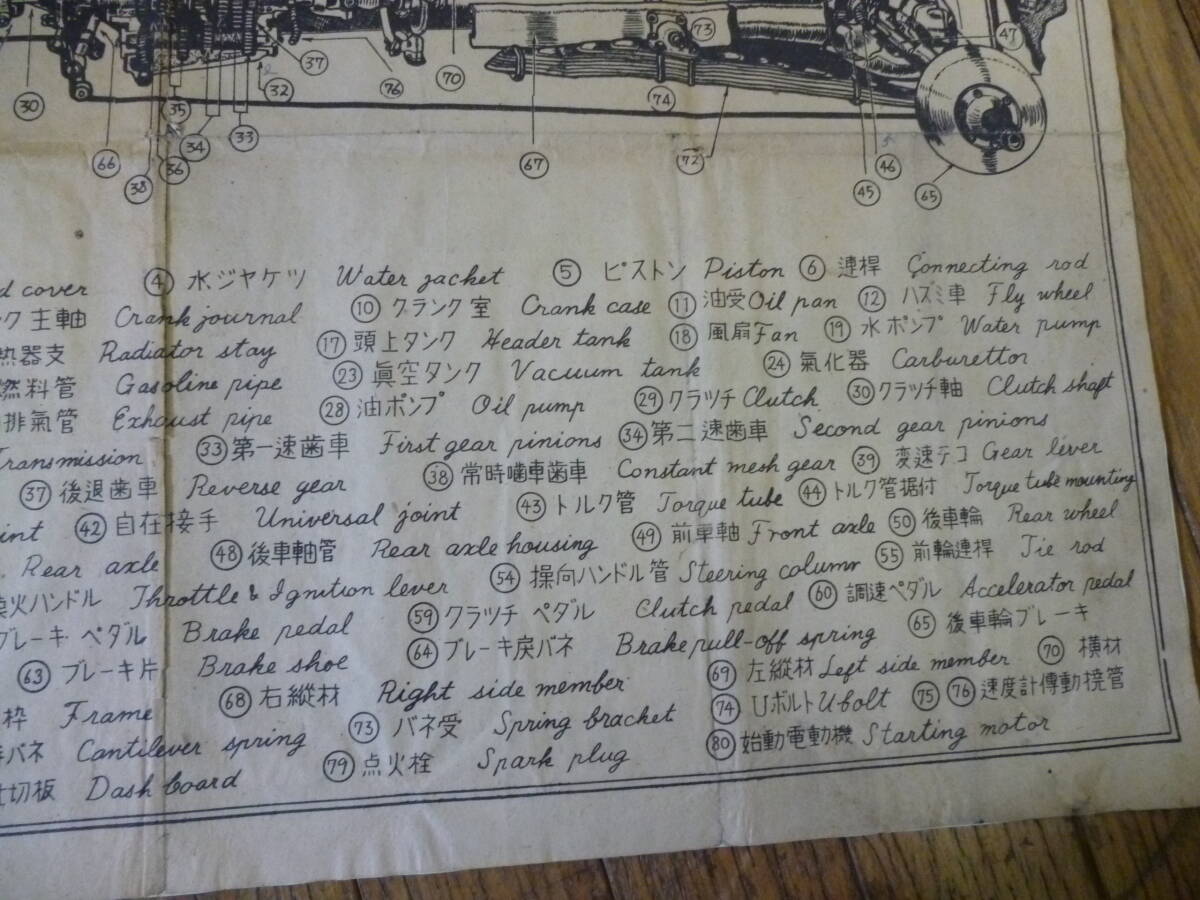 73 47
37 70 76 32 30 74
35
34 33 46
66 36 67 72
38 45 65
d cover ④ 水ジヤケツ Water jacket ⑤ ピストン Piston ⑥ 連桿 Connecting rod
ク主軸 Crank journal ⑩ クランク室 Crank case ⑪ 油受 Oil pan ⑫ ハズミ車 Fly wheel
熱器支 Radiator stay ⑰ 頭上タンク Header tank ⑱ 風扇 Fan ⑲ 水ポンプ Water pump
燃料管 Gasoline pipe ㉓ 眞空タンク Vacuum tank ㉔ 氣化器 Carburettor
排氣管 Exhaust pipe ㉘ 油ポンプ Oil pump ㉙ クラツチ Clutch ㉚ クラツチ軸 Clutch shaft
Transmission ㉝ 第一速歯車 First gear pinions ㉞ 第二速歯車 Second gear pinions
㊲ 後退歯車 Reverse gear ㊳ 常時嚙車歯車 Constant mesh gear ㊴ 変速テコ Gear lever
int ㊷ 自在接手 Universal joint ㊸ トルク管 Torque tube ㊹ トルク管据付 Torque tube mounting
Rear axle ㊽ 後車軸管 Rear axle housing ㊾ 前車軸 Front axle ㊿ 後車輪 Rear wheel
火ハンドル Throttle & Ignition lever 54 操向ハンドル管 Steering column 55 前輪連桿 Tie rod
ブレーキペダル Brake pedal 59 クラツチペダル Clutch pedal 60 調速ペダル Accelerator pedal
63 ブレーキ片 Brake shoe 64 ブレーキ戻バネ Brake pull-off spring 65 後車輪ブレーキ
枠 Frame 68 右縱材 Right side member 69 左縱材 Left side member 70 横材
バネ Cantilever spring 73 バネ受 Spring bracket 74 Uボルト U bolt 75 76 速度計傳動撓管
切板 Dash board 79 点火栓 Spark plug 80 始動電動機 Starting motor